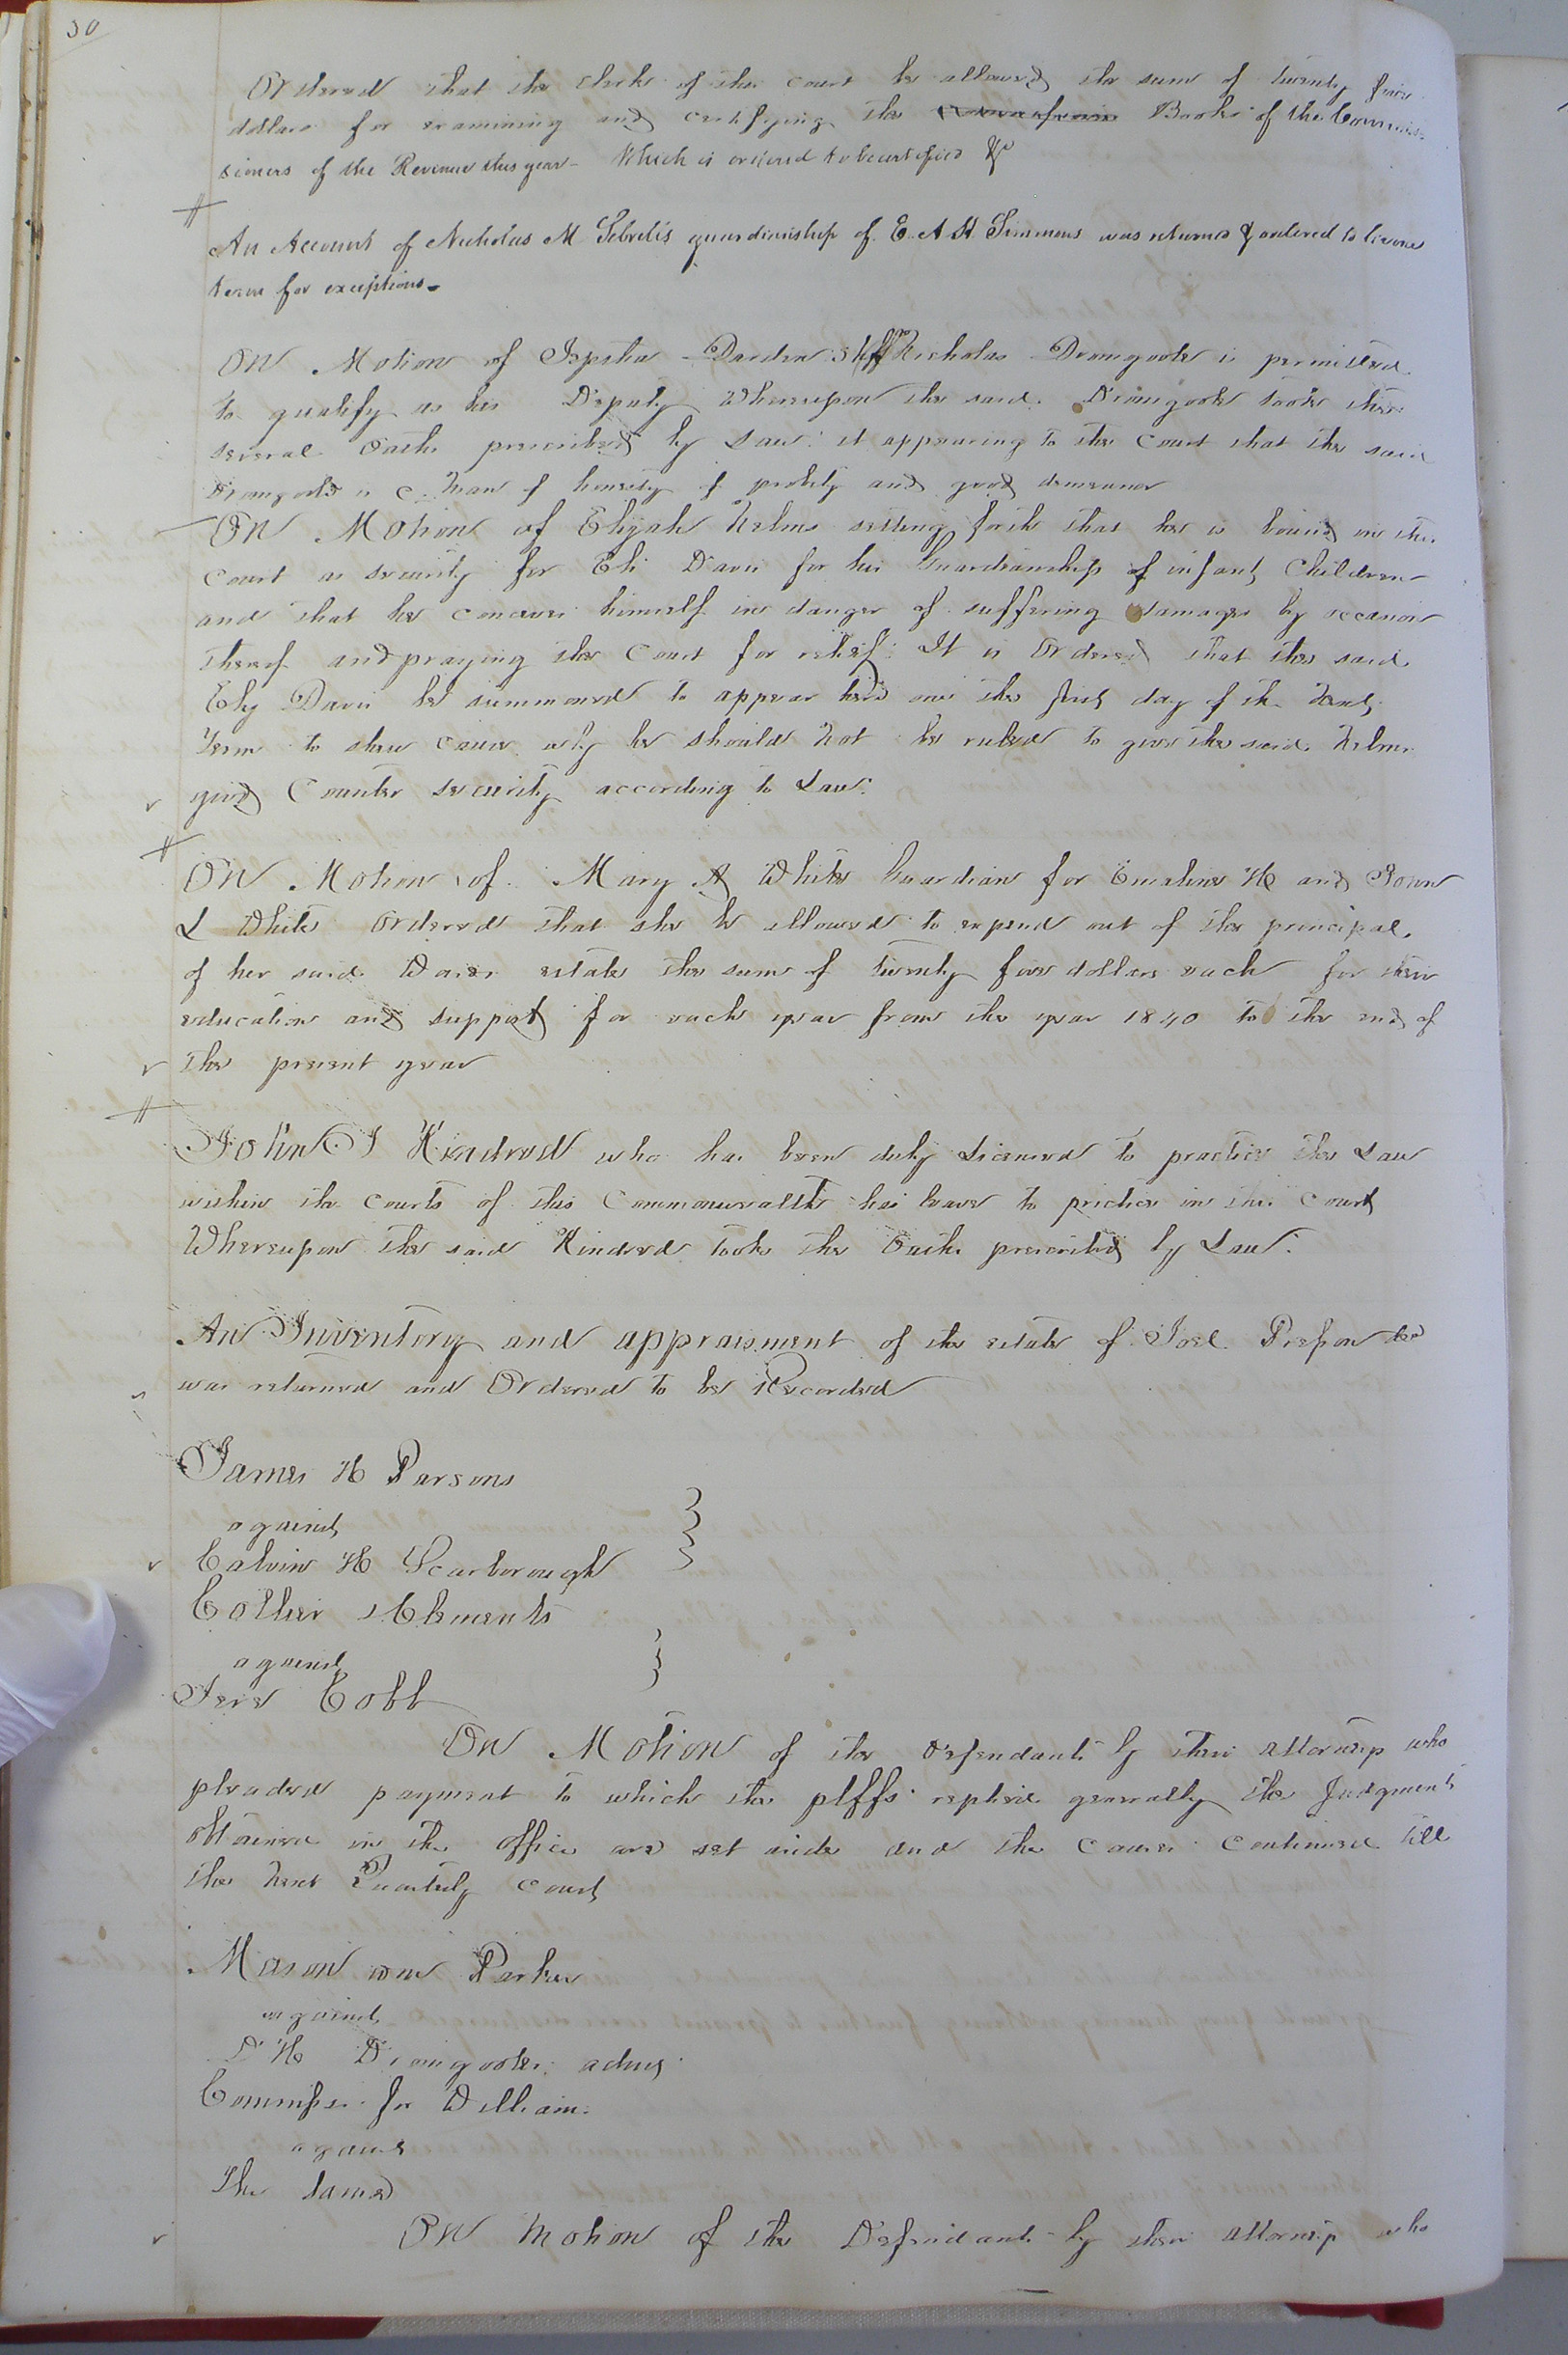 30
Ordered that the clerk of this court be allowed the sum of twenty five
dollars for examining and certifying the Books of the Commis-
sioners of the Revenue this year - Which is ordered to be certified &c
An Account of Nicholas M Sebrell's guardianship of E. A. H. Simmons was returned & ordered to lie one
term for exceptions -
On Motion of Jepths Darden Shff Nicholas Dromgoole is permitted
to qualify as his Deputy Whereupon the said Dromgoole took the
several Oaths prescribed by Law: it appearing to the Court that the said
Dromgoole is a Man of honesty of probity and good demeanor
On Motion of Elijah Nelms setting forth that he is bound in this
Court as security for Eli Davis for his Guardianship of infant Children
and that he conceives himself in danger of suffering damages by occasion
thereof and praying the Court for relief: It is Ordered that the said
Ely Davis be summoned to appear here on the first day of the Next
Term to shew cause why he should Not be ruled to give the said Nelms
good Counter security according to Law:
On Motion of Mary A White Guardian for Emeline H and John
L White Ordered that she be allowed to expend out of the principal
of her said Wards estate the sum of twenty five dollars each for their
education and support for each year from the year 1840 to the end of
the present year
John J Kindred who has been duly Licensed to practice the Law
within the Courts of this Commonwealth has leave to practice in this Court
Whereupon the said Kindred took the Oaths prescribed by Law:
An Inventory and appraisment of the estate of Joel decd
was returned and Ordered to be Recorded
James H Parsons
against
Calvin H Scarborough
Collier Clements
against
Jere Cobb
On Motion of the Defendants by their attorneys who
pleaded payment to which the plffs replied generally the Judgments
obtained in the office are set aside and the Causes Continued till
the Next Quarterly Court
Mason Parker
against
D H Dromgoole admr
for William
against
The Same
On Motion of the Defendant by their attorneys who